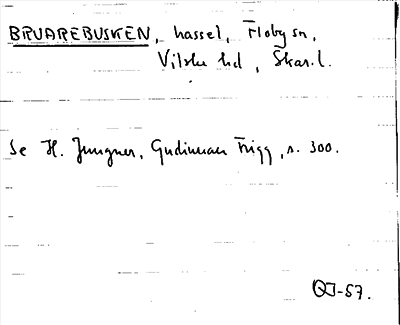 BRUAREBUSKEN, hassel, Floby sn,
Vilske hd, Skar.l.
Se H. Jungner, Gudinnan Frigg, s. 300.
OJ-57.